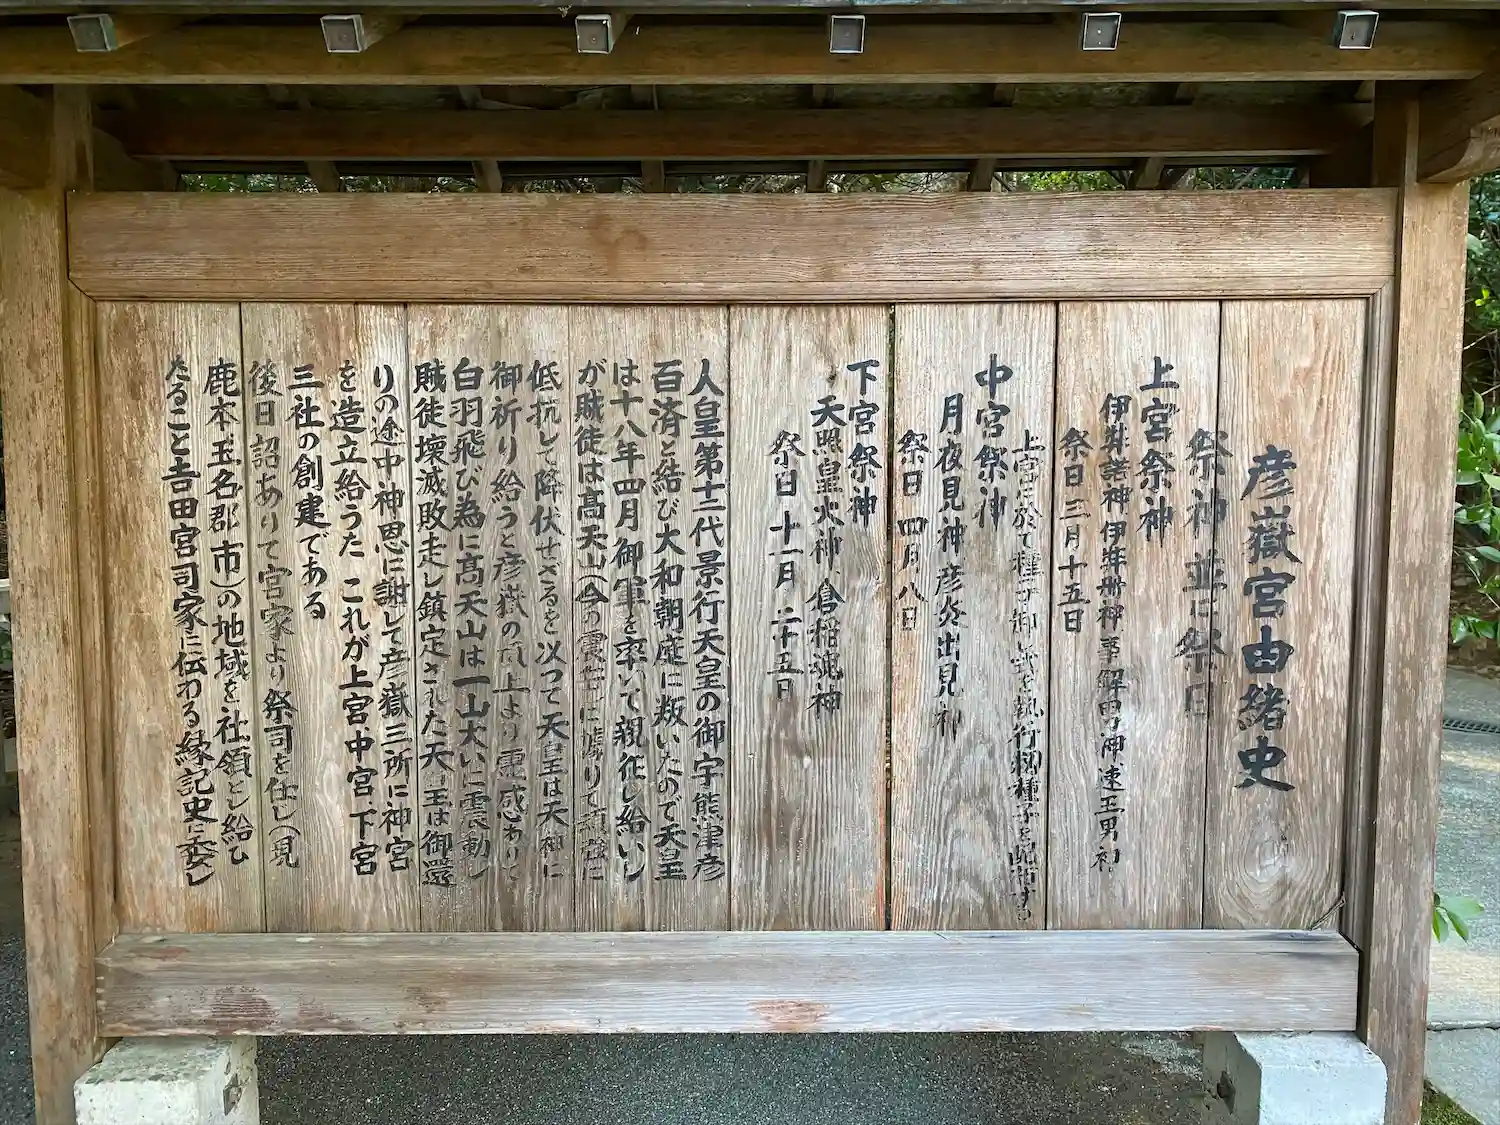 彦嶽宮由緒史
祭神並に祭日
上宮祭神
伊弉諾神 伊弉册神 事解男神 速玉男神
祭日 三月十五日
中宮祭神
上宮に於て種子御 を執行 種子を
月夜見神 彦炎出見神
祭日 四月八日
下宮祭神
天照皇大神 倉稲魂神
祭日 十一月二十五日
人皇第十二代景行天皇の御宇熊津彦
百済と結び大和朝庭に叛いたので天皇
は十八年四月御軍を率いて親征し給いし
が賊徒は高天山(今の震岳)に據りて頑強に
低抗して降伏せざるを以つて天皇は天神に
御祈り給うと彦嶽の頂上より霊感ありて
白羽飛び為に高天山は一山大いに震動し
賊徒壊滅敗走し鎮定された天皇は御還
りの途中神恩に謝して彦嶽三所に神宮
を造立給うた これが上宮、中宮、下宮
三社の創建である
後日詔ありて宮家より祭司を任し(現
鹿本、玉名郡市)の地域を社領とし給ひ
たること吉田宮司家に伝わる縁記史に委し